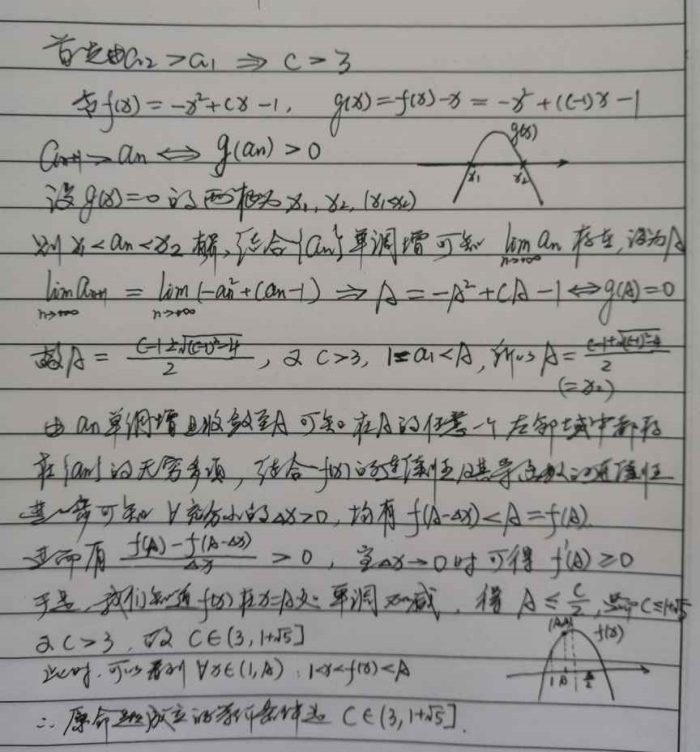 首先由a₂>a₁ ⇒ c>3
令f(x)=-x²+cx-1, g(x)=f(x)-x=-x²+(c-1)x-1
aₙ₊₁>aₙ ⇔ g(aₙ)>0
g(x)
x₁ x₂
设g(x)=0的两根为x₁, x₂, (x₁<x₂)
则x₁<aₙ<x₂有界,结合{aₙ}单调增可知 lim aₙ 存在,设为A
n→+∞
lim aₙ₊₁ = lim (-aₙ²+caₙ-1) ⇒ A=-A²+cA-1 ⇔ g(A)=0
n→+∞ n→+∞
故A=(c-1±√((c-1)²-4))/2, 又c>3, 1=a₁<A, 所以A=(c-1+√((c-1)²-4))/2
(=x₂)
由aₙ单调增且收敛至A可知在A的任意一个左邻域中都存
在{aₙ}的无穷多项,结合f(x)的连续性及其导函数的连续性
进一步可知∀充分小的Δx>0,均有f(A-Δx)<A=f(A).
进而有 (f(A)-f(A-Δx))/Δx >0, 当Δx→0时可得f'(A)≥0
于是,我们知道f(x)在x=A处单调不减,得A≤c/2,即c≤1+√5
又c>3,故c∈(3,1+√5]
f(x)
此时,可以看到∀x∈(1,A):1<x<f(x)<A
1 A c/2
∴原命题成立的等价条件为c∈(3,1+√5].